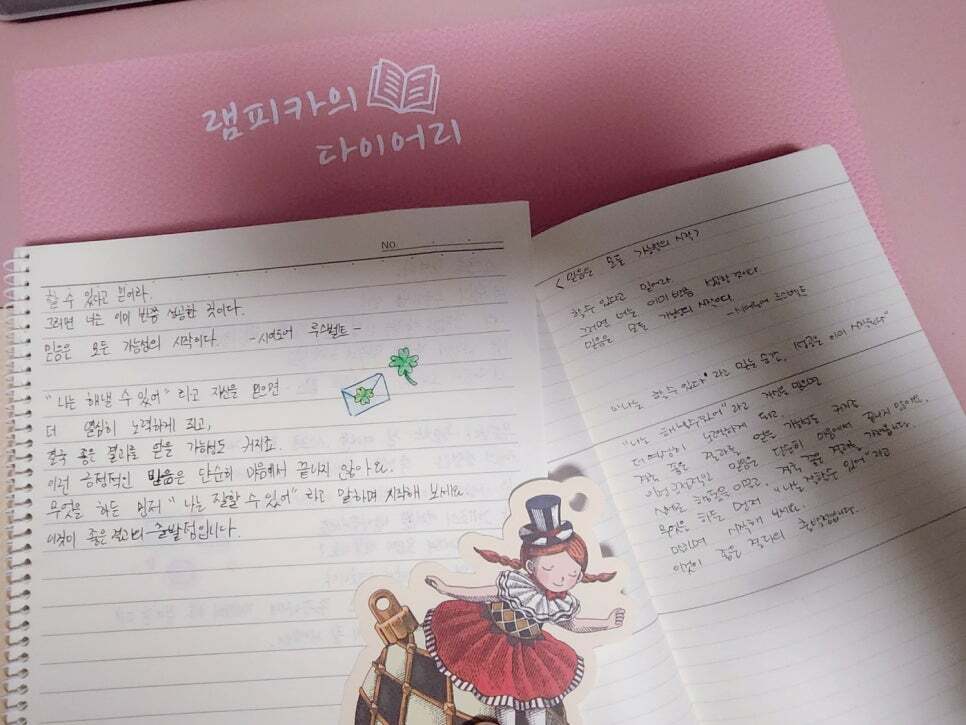 램피카의
다이어리
NO.
할 수 있다고 믿어라.
그러면 너는 이미 반쯤 성공한 것이다.
믿음은 모든 가능성의 시작이다. -시어도어 루스벨트-
"나는 해낼 수 있어" 라고 자신을 믿으면
더 열심히 노력하게 되고,
결국 좋은 결과를 얻을 가능성도 커지죠.
이런 긍정적인 믿음은 단순히 마음에서 끝나지 않아요.
무엇을 하든 먼저 "나는 잘할 수 있어" 라고 말하며 시작해 보세요.
이것이 좋은 결과의 출발점입니다.
<믿음은 모든 가능성의 시작>
할 수 있다고 믿어라
그러면 너는 이미 반쯤 성공한 것이다
믿음은 모든 가능성의 시작이다.
-시어도어 루스벨트
할 수 있다" 라고 믿는 순간, 성공은 이미 시작된다"
"나는 해낼 수 있어" 라고 자신을 믿으면
더 열심히 노력하게 되고
결국 좋은 결과를 얻을 가능성도 커지죠
이런 긍정적인 믿음은 단순히 마음에서 끝나지 않아요.
행동을 이끌고, 결국 좋은 결과를 가져옵니다.
무엇을 하든 먼저 "나는 잘할 수 있어" 라고
말하며 시작해 보세요.
이것이 좋은 결과의 출발점입니다.